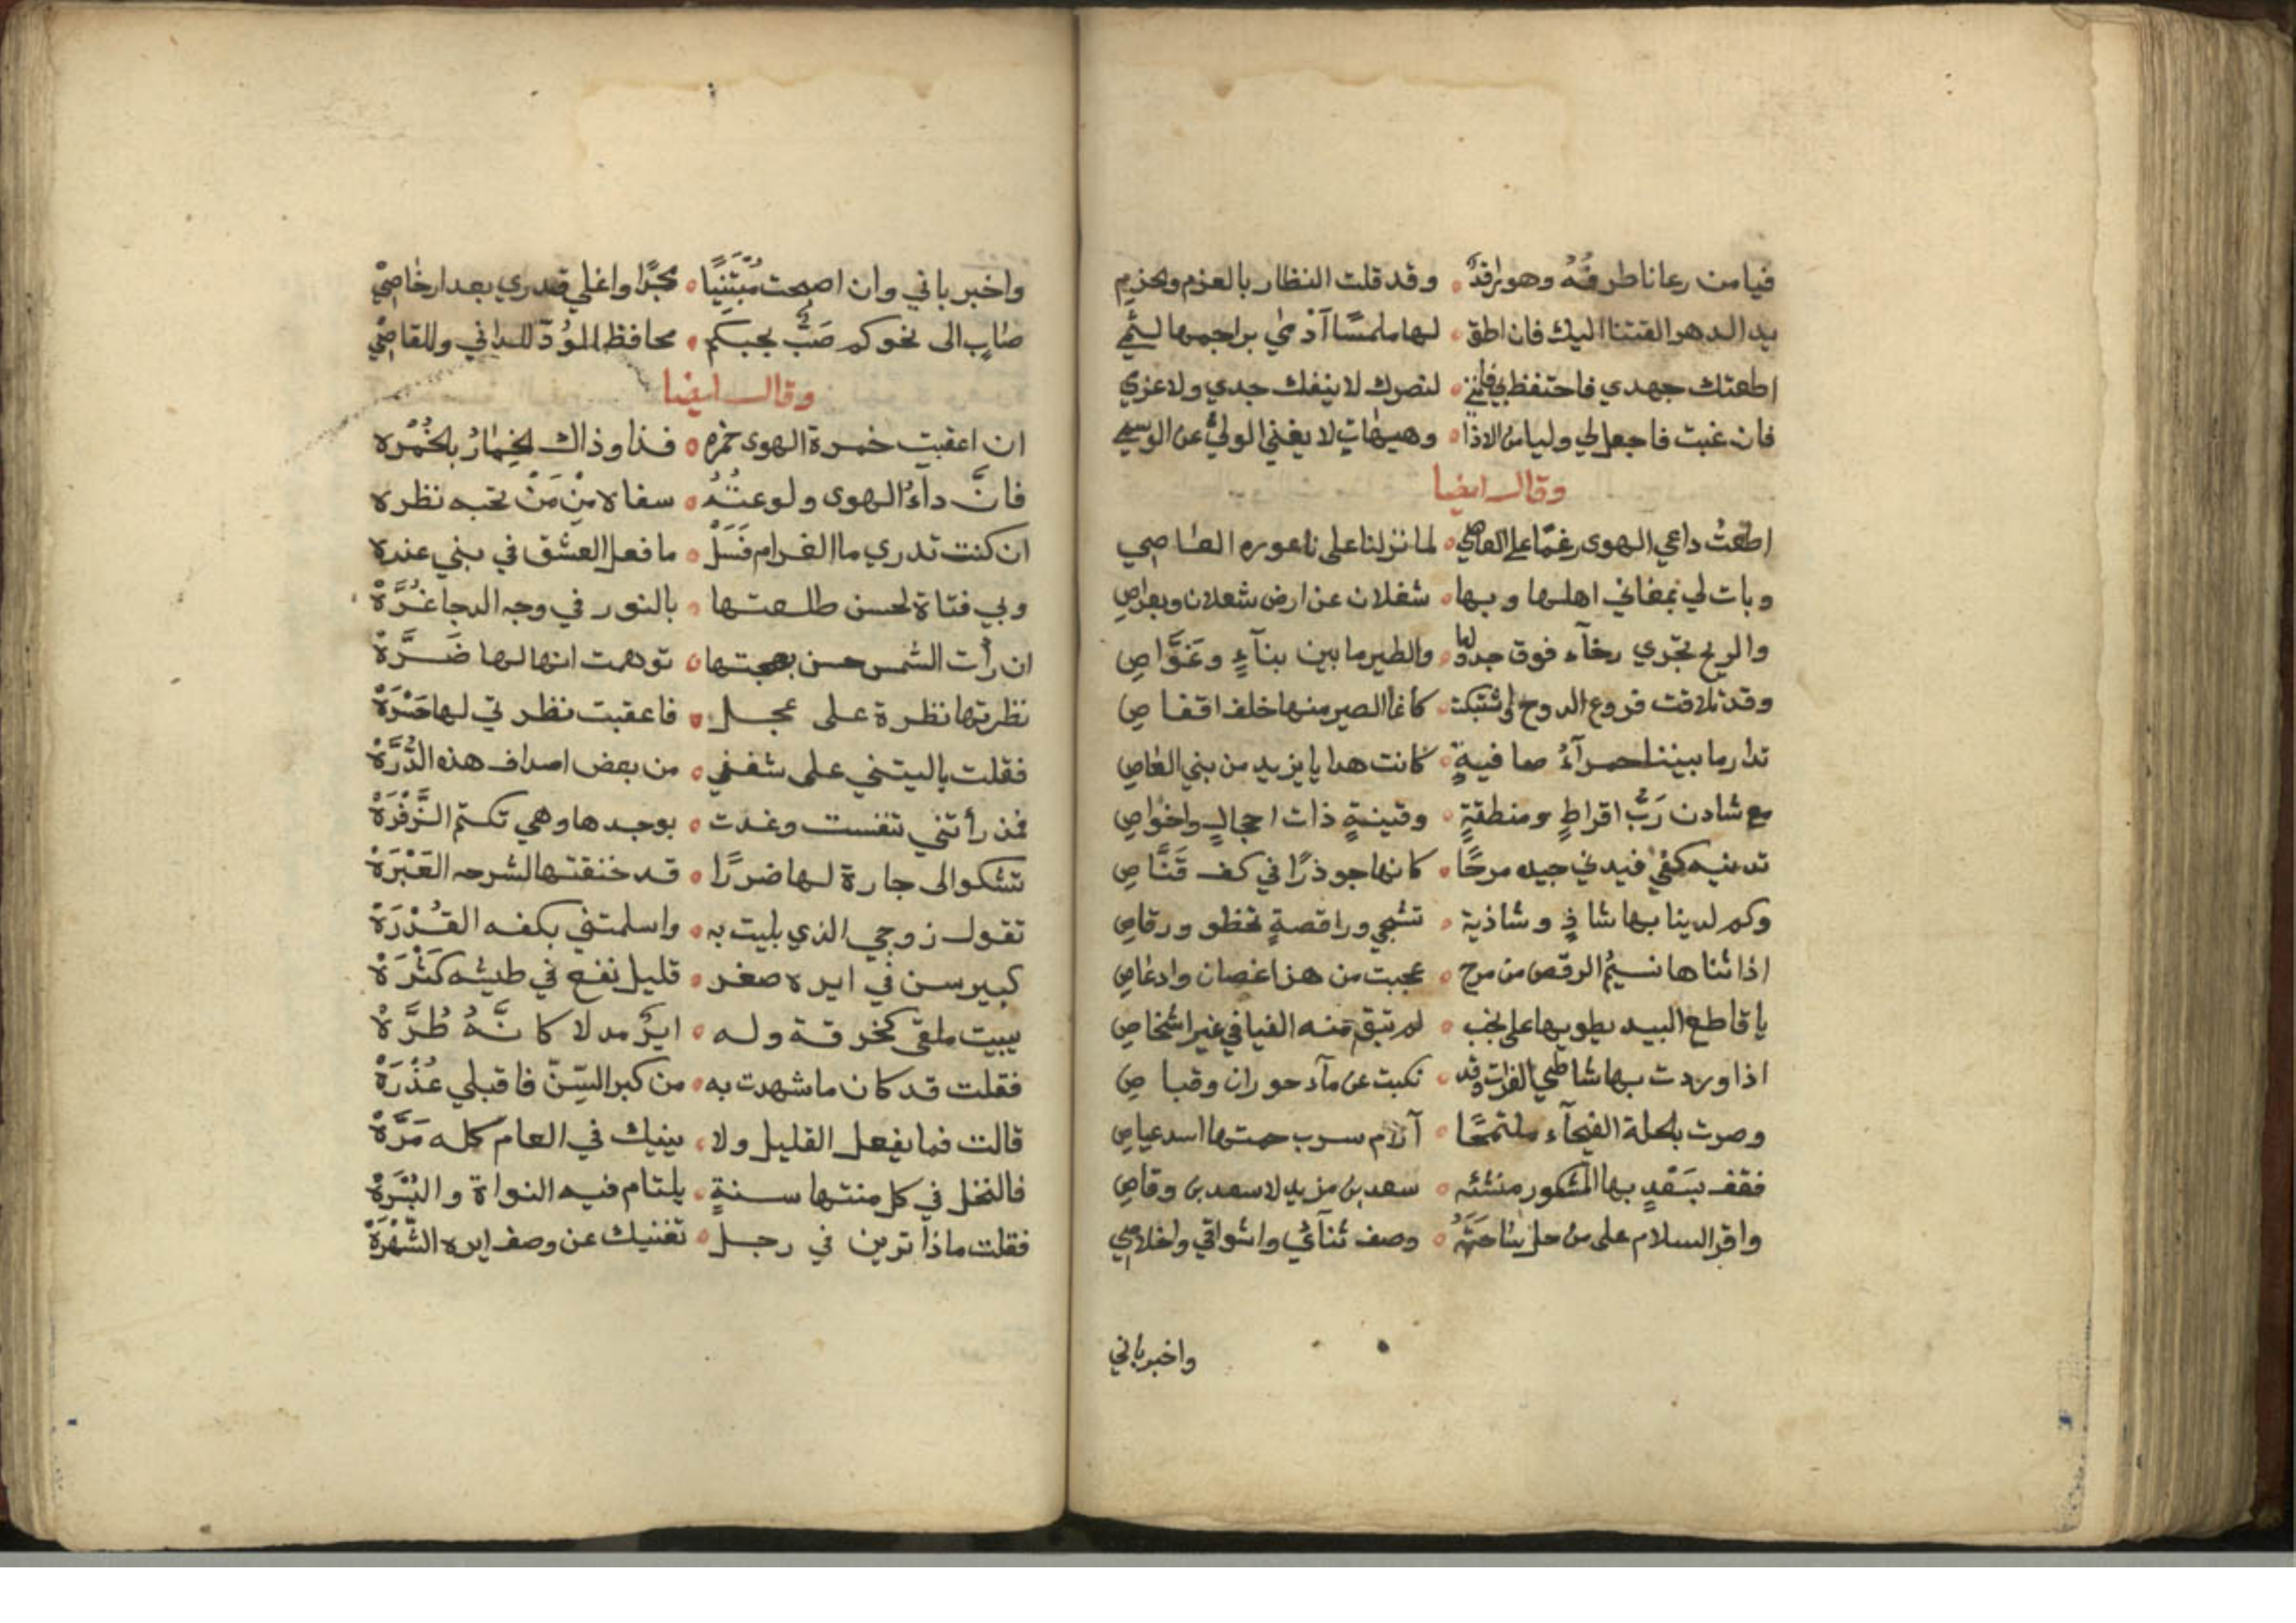 فيا من رعانا طرفُهُ وهو راقدٌ ۰ وقد قلت النظار بالعزم والحزم
يد الدهر القتنا اليك فان اطق ۰ لها ملمسًا أدمي براجمها لثمي
اطعتك جهدي فاحتفظ بي فانني ۰ لنصرك لا ينفك جدي ولا عزمي
فان غبت فاجعل لي وليا من الاذا ۰ وهيهات لا يغني الوليُّ عن الوسمي
وقال ايضا
اطعتُ داعي الهوى رغمًا على العاصي ۰ لما نزلنا على ناعوره العاصي
وبات لي بمغاني اهلها وبها ۰ شغلان عن ارض شعلان وبعراص
والريح تجري رخآء فوق جدولها ۰ والطير ما بين بنآءٍ وغوَّاصِ
وقد تلاقت فروع الدوح واشتبكت ۰ كانما الطير منها خلف اقفاصِ
تدار ما بيننا حمرآءُ صافيةٍ ۰ كانت هدايا يزيد من بني العاص
مع شادن رَبِّ اقراطٍ ومنطقةٍ ۰ وقينةٍ ذات احجالٍ واخواصِ
تدنيه كفي فيدني جيده مرحًا ۰ كانها جوذرًا في كف قَنَّاصِ
وكم لدينا بها شاذٍ وشاذية ۰ تشجي وراقصةٍ تخطو ورقاصِ
اذا ثناها نسيمُ الرقص من مرح ۰ عجبت من هز اغصان وادعاصِ
يا قاطع البيد يطويها على نجب ۰ لم تبق منه الفيافي غير اشخاصِ
اذا وردت بها شاطي الفرات وقد ۰ نكبت عن مآء حوران وقباصِ
وصرت بالحلة الفيحآء ملتمحًا ۰ آرام سرب حمتها اسد عياصِ
فقف بسَعْدٍ بها المشكور منشئه ۰ سعد بن مزيد لا سعد بن وقاصِ
واقر السلام على من حل ساحَتَهُ ۰ وصف ثنآئي واشواقي واخلاصي
واخبر باني
واخبر باني وان اصبحت مُبْتَنِيًا ۰ مجدًا واغلي قدري بعد ارخاصي
صاب الى نحوكم صَبٌّ بحبكم ۰ محافظ الوُدّ للداني وللقاصي
وقال ايضا
ان اعقبت خمرة الهوى خمره ۰ فذا وذاك الخِمارُ بالخُمْره
فانَّ دآءُ الهوى ولوعتُهُ ۰ سفاه مِنْ مَنْ تحبه نظره
ان كنت تدري ما الغرام فَسَلْ ۰ ما فعل العشق في بني عذره
وبي فتاة لحسن طلعتها ۰ بالنور في وجه الدجا غُرَّهْ
ان رأت الشمس حسن بهجتها ۰ توهمت انها لها ضَرَّهْ
نظرتها نظرة على عجل ۰ فاعقبت نظرتي لها حَسْرَهْ
فقلت ياليتني على شغفي ۰ من بعض اصداف هذه الدُّرَّهْ
فمذ رأتني تنفست وغدت ۰ بوجدها وهي تكتم الزَّفْرَهْ
تشكو الى جارة لها ضررًا ۰ قد خنقتها لشرحه العَبْرَهْ
تقول زوجي الذي بليت به ۰ واسلمتني بكفه القُدْرَهْ
كبير سن في ايره صغر ۰ قليل نفع في طيشه كَثْرَهْ
يبيت ملقى كخرقة وله ۰ ايرٌ مدلا كانَّهُ طُرَّهْ
فقلت قد كان ما شهدت به ۰ من كبر السِّنّ فاقبلي عُذْرَهْ
قالت فما يفعل القليل ولا ۰ ينيك في العام كله مَرَّهْ
فالنخل في كل منتها سنةٍ ۰ يلتام فيه النواة والبُسْرَهْ
فقلت ماذا ترين في رجل ۰ تغنيك عن وصف ايره الشُّهْرَهْ